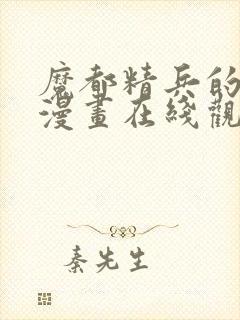 魔都精兵的
漫畫在綫觀
秦先生